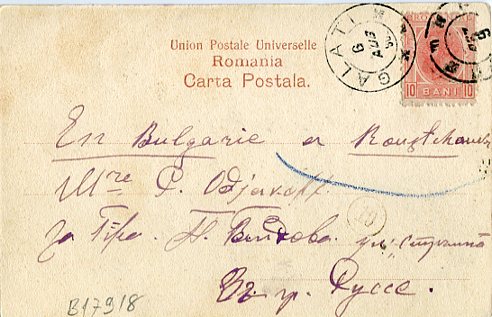 Union Postale Universelle
Romania
Carta Postala.
GALATI
6 AUG
10 BANI 10
En Bulgarie a Roustchouk
Mre P. Odjakoff.
за Гђа. Н. Вендова
Въ гр. Руссе.
B17918